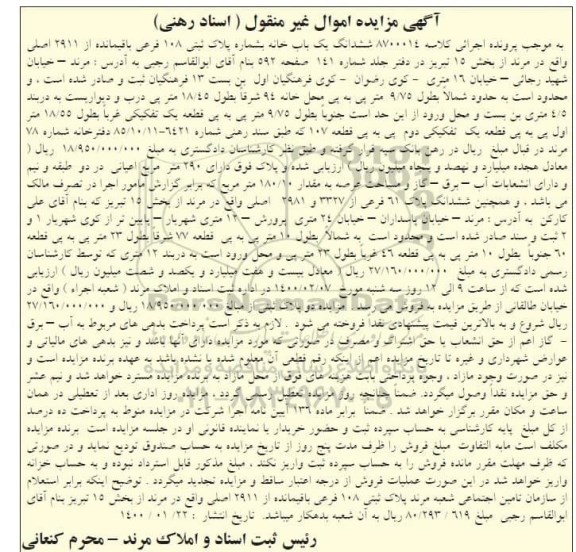 آگهی مزایده اموال غیر منقول ( اسناد رهنی )
به موجب پرونده اجرائی کلاسه ۸۷۰۰۰۱۴ ششدانگ یک باب خانه بشماره پلاک ثبتی ۱۰۸ فرعی باقیمانده از ۲۹۱۱ اصلی
واقع در مرند از بخش ۱۵ تبریز در دفتر جلد شماره ۱۴۱ صفحه ۵۹۲ بنام آقای ابوالقاسم رجبی به آدرس : مرند – خیابان
شهید رجائی – خیابان ۱۶ متری – کوی رضوان – کوی فرهنگیان اول بن بست ۱۳ فرهنگیان ثبت و صادر شده است ، و
محدود است به حدود شمالاً بطول ۹/۷۵ متر پی به پی محل خانه ۹۴ شرقاً بطول ۱۸/۴۵ متر پی درب و دیواریست به دربند
۴/۵ متری بن بست و محل ورود از این حد است جنوباً بطول ۹/۷۵ متر پی به پی قطعه یک تفکیکی غرباً بطول ۱۸/۵۵ متر
اول پی به پی قطعه یک تفکیکی دوم پی به پی قطعه ۱۰۷ که طبق سند رهنی شماره ۶۴۲۱–۸۵/۱۰/۱۱ دفترخانه شماره ۷۸
مرند در قبال مبلغ ریال در رهن بانک سپه قرار گرفته و طبق نظر کارشناسان دادگستری به مبلغ ۱۸/۹۵۰/۰۰۰/۰۰۰ ریال (
معادل هجده میلیارد و نهصد و پنجاه میلیون ریال ) ارزیابی شده و پلاک فوق دارای ۲۹۰ متر مربع اعیانی در دو طبقه و نیم
و دارای انشعابات آب – برق – گاز و مساحت عرصه به مقدار ۱۸۰/۱ متر مربع که برابر گزارش مأمور اجرا در تصرف مالک
می باشد ، و همچنین ششدانگ پلاک ۶۱ فرعی از ۳۳۲۷ و ۲۹۸۱ اصلی واقع در مرند از بخش ۱۵ تبریز که بنام آقای علی
کارکن به آدرس : مرند – خیابان پاسداران – خیابان ۲۴ متری پرورش – ۱۲ متری شهریار – پایین تر از کوی شهریار ۱ و
۲ ثبت و سند صادر شده است و محدود است به شمالاً بطول ۱۰ متر پی به پی قطعه ۷۷ شرقاً بطول ۲۳ متر پی به پی قطعه
۶۰ جنوباً بطول ۱۰ متر پی به پی قطعه ۴۶ غرباً بطول ۲۳ متر پی و محل ورود است به دربند ۱۲ متری که توسط کارشناسان
رسمی دادگستری به مبلغ ۲۷/۱۶۰/۰۰۰/۰۰۰ ریال ( معادل بیست و هفت میلیارد و یکصد و شصت میلیون ریال ) ارزیابی
شده است که از ساعت ۹ الی ۱۲ روز سه شنبه مورخ ۱۴۰۰/۰۲/۰۷ در اداره ثبت اسناد و املاک مرند ( شعبه اجراء ) واقع در
خیابان طالقانی از طریق مزایده بفروش می رسد . مزایده دو پلاک ثبتی از مبالغ ۱۸/۹۵۰/۰۰۰/۰۰۰ ریال و ۲۷/۱۶۰/۰۰۰/۰۰۰
ریال شروع و به بالاترین قیمت پیشنهادی نقداً فروخته می شود . لازم به ذکر است پرداخت بدهی های مربوط به آب – برق
– گاز اعم از حق انشعاب یا حق اشتراک و مصرف در صورتی که مورد مزایده دارای آنها باشد و نیز بدهی های مالیاتی و
عوارض شهرداری و غیره تا تاریخ مزایده اعم از اینکه رقم قطعی آن معلوم شده یا نشده باشد به عهده برنده مزایده است و
نیز در صورت وجود مازاد ، وجوه پرداختی بابت هزینه های فوق از محل مازاد به برنده مزایده مسترد خواهد شد و نیم عشر
و حق مزایده نقداً وصول میگردد. ضمناً چنانچه روز مزایده تعطیل رسمی گردد، مزایده روز اداری بعد از تعطیلی در همان
ساعت و مکان مقرر برگزار خواهد شد . ضمناً برابر ماده ۱۳۶ آیین نامه اجرا شرکت در مزایده منوط به پرداخت ده درصد
از کل مبلغ پایه کارشناسی به حساب سپرده ثبت و حضور خریدار یا نماینده قانونی او در جلسه مزایده است برنده مزایده
مکلف است مابه التفاوت مبلغ فروش را ظرف مدت پنج روز از تاریخ مزایده به حساب صندوق تودیع نماید و در صورتی
که ظرف مهلت مقرر مانده فروش را به حساب سپرده ثبت واریز نکند ، مبلغ مذکور قابل استرداد نبوده و به حساب خزانه
واریز خواهد شد در این صورت عملیات فروش از درجه اعتبار ساقط و مزایده تجدید میگردد . توضیح اینکه برابر استعلام
از سازمان تامین اجتماعی شعبه مرند پلاک ثبتی ۱۰۸ فرعی باقیمانده از ۲۹۱۱ اصلی واقع در مرند از بخش ۱۵ تبریز بنام آقای
ابوالقاسم رجبی مبلغ ۸۰/۲۹۳/۶۱۹ ریال به آن شعبه بدهکار میباشد. تاریخ انتشار : ۲۲ / ۰۱ / ۱۴۰۰
رئیس ثبت اسناد و املاک مرند – محرم کنعانی